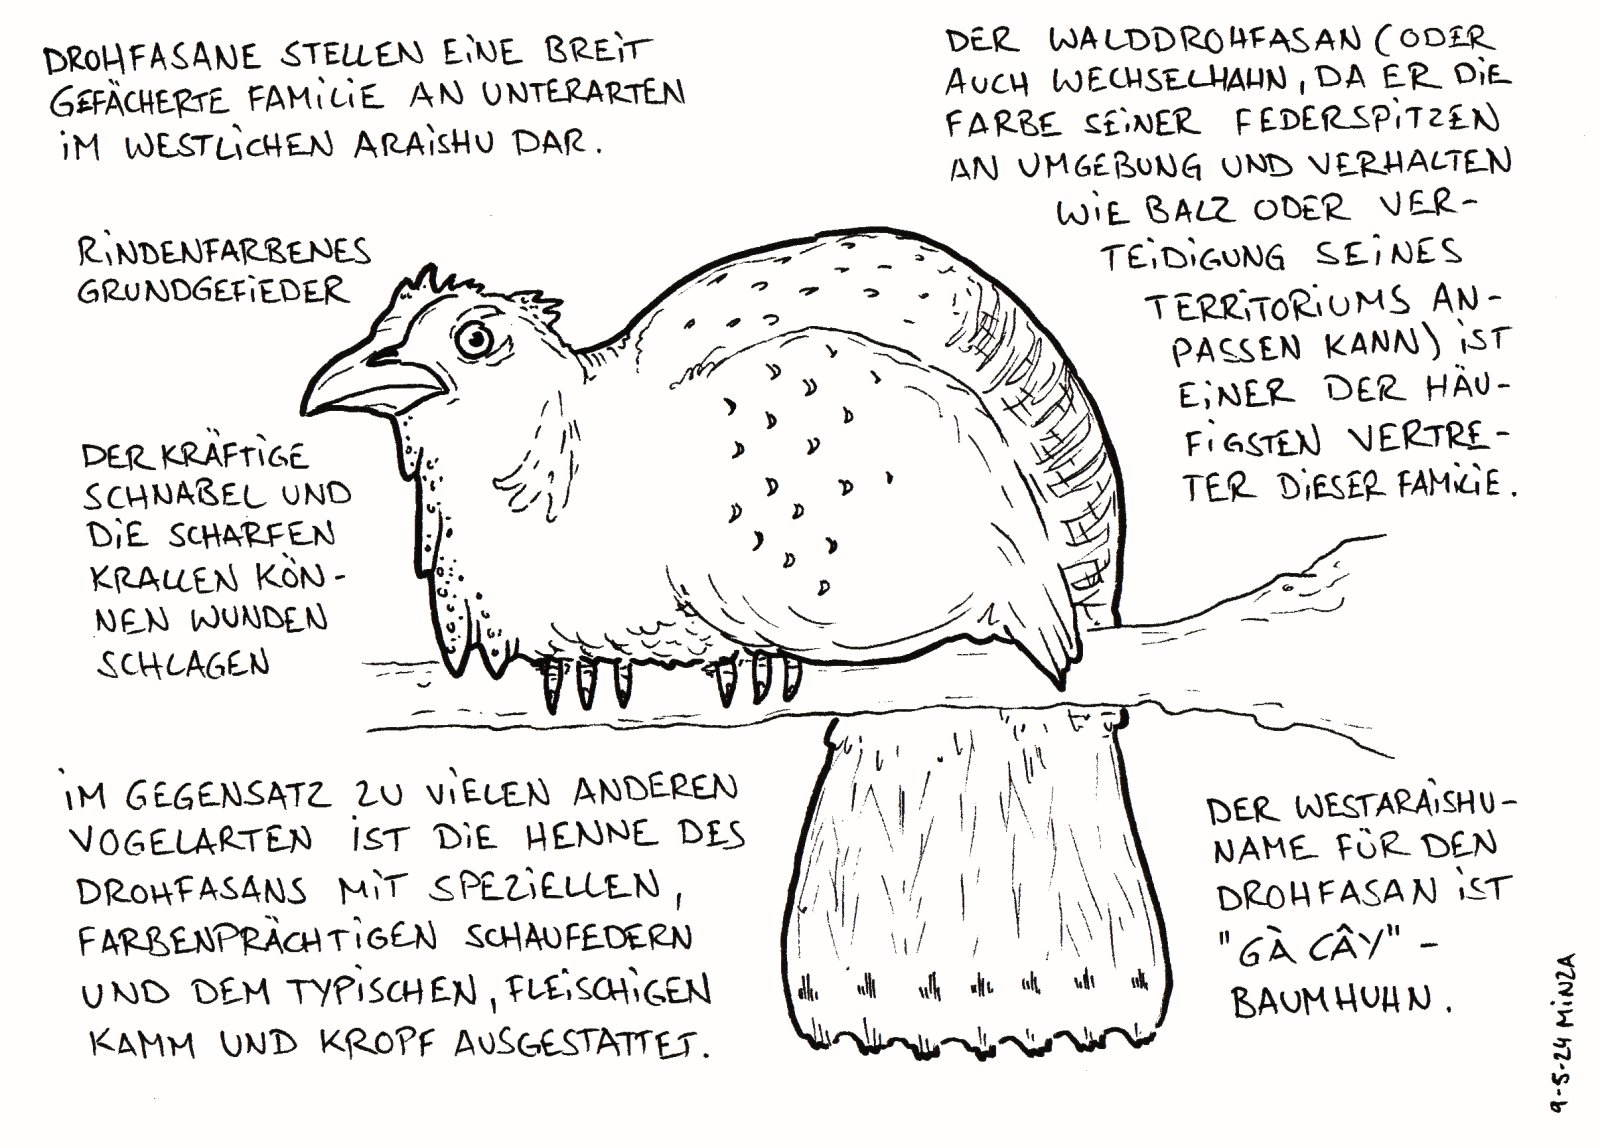 DROHFASANE STELLEN EINE BREIT
GEFÄCHERTE FAMILIE AN UNTERARTEN
IM WESTLICHEN ARAISHU DAR.
DER WALDDROHFASAN (ODER
AUCH WECHSELHAHN, DA ER DIE
FARBE SEINER FEDERSPITZEN
AN UMGEBUNG UND VERHALTEN
WIE BALZ ODER VER-
TEIDIGUNG SEINES
TERRITORIUMS AN-
PASSEN KANN) IST
EINER DER HÄU-
FIGSTEN VERTRE-
TER DIESER FAMILIE.
RINDENFARBENES
GRUNDGEFIEDER
DER KRÄFTIGE
SCHNABEL UND
DIE SCHARFEN
KRALLEN KÖN-
NEN WUNDEN
SCHLAGEN
IM GEGENSATZ ZU VIELEN ANDEREN
VOGELARTEN IST DIE HENNE DES
DROHFASANS MIT SPEZIELLEN,
FARBENPRÄCHTIGEN SCHAUFEDERN
UND DEM TYPISCHEN, FLEISCHIGEN
KAMM UND KROPF AUSGESTATTET.
DER WESTARAISHU-
NAME FÜR DEN
DROHFASAN IST
"GÀ CÂY" -
BAUMHUHN.
9-5-24 MINZA